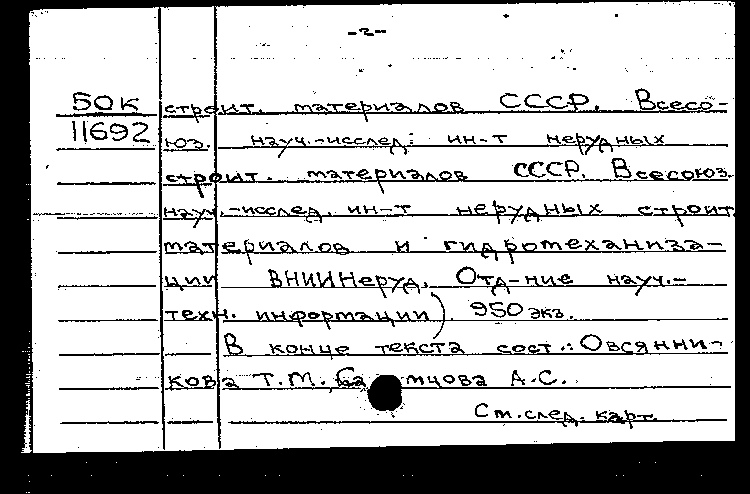 -2-
50К строит. материалов СССР. Всесо-
11692 юз. науч.-исслед. ин-т нерудных
строит. материалов СССР. Всесоюз.
науч.-исслед. ин-т нерудных строит.
материалов и гидромеханиза-
ции ВНИИНеруд. Отд-ние науч.-
техн. информации). 950 экз.
В конце текста сост.: Овсянни-
кова Т.М., А.С.
См. след. карт.